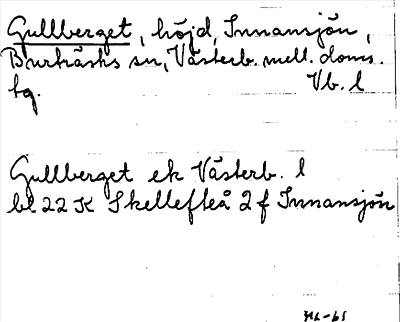 Gullberget, höjd, Innansjön,
Burträsks sn, Västerb. mell. doms.
tg. Vb. l
Gullberget ek Västerb. l
bl 22 K Skellefteå 2 f Innansjön